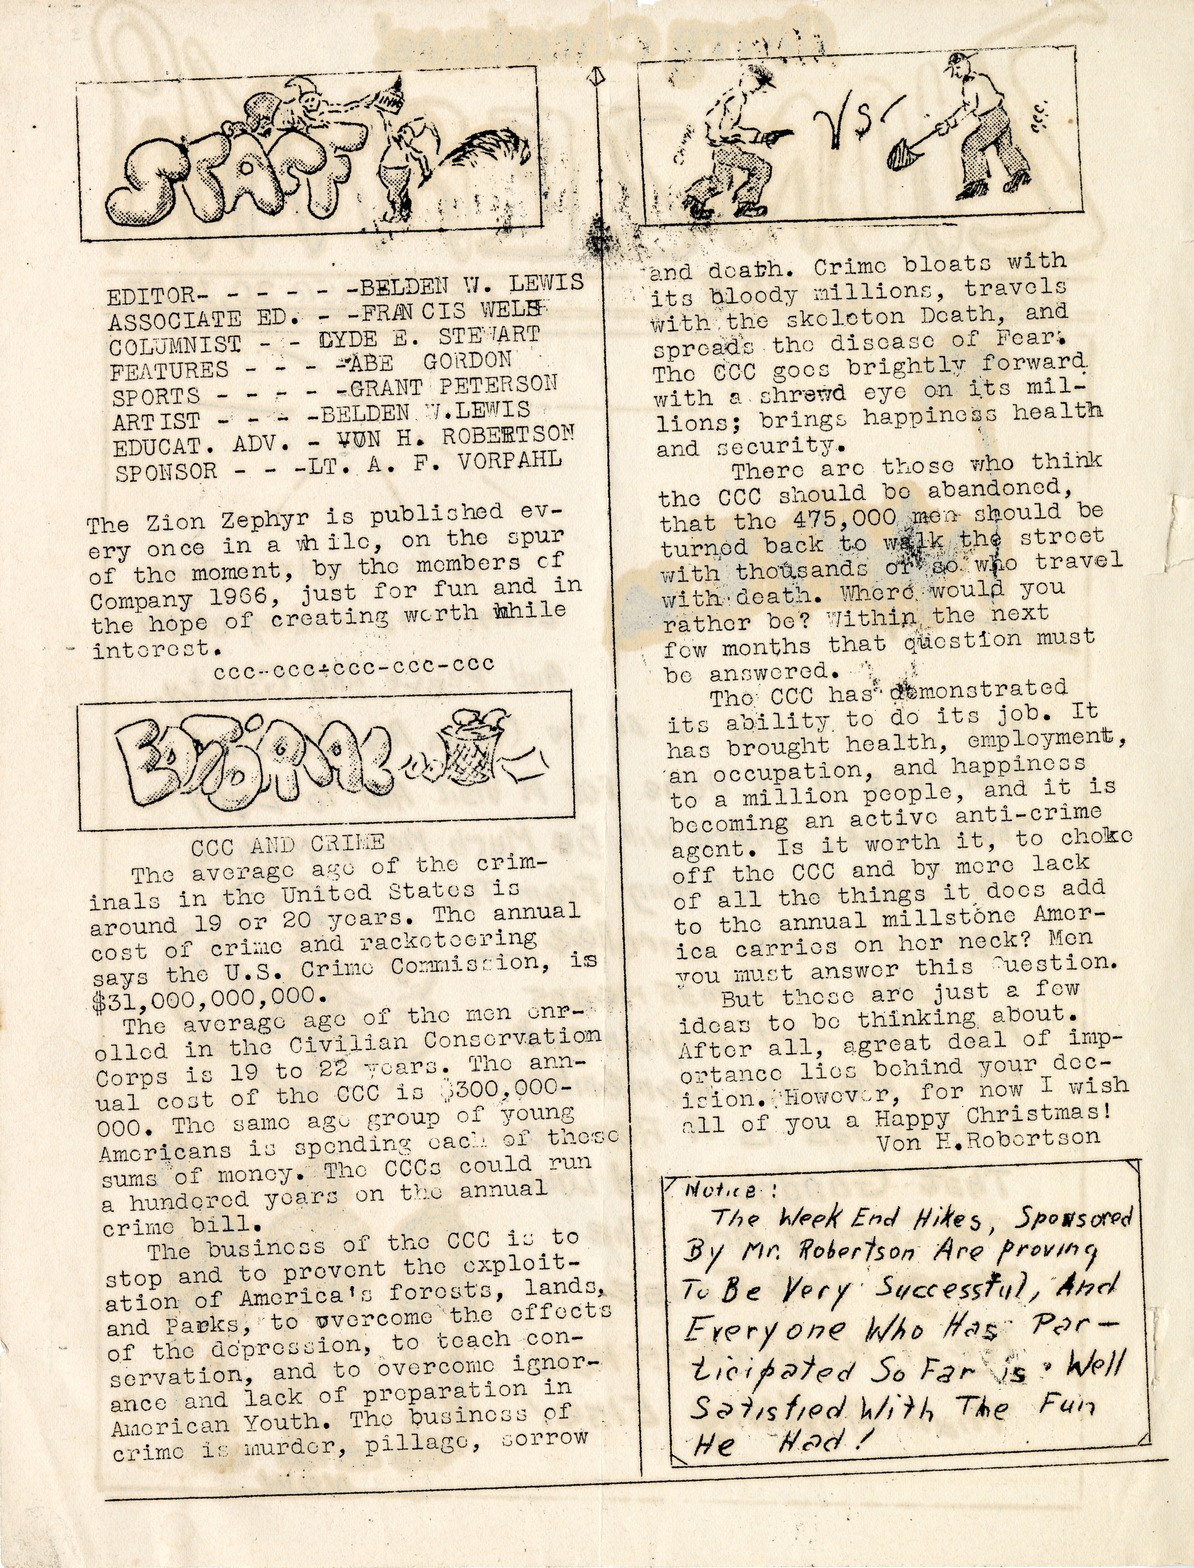 STAFF
EDITOR- - - - - -BELDEN W. LEWIS
ASSOCIATE ED. - -FRANCIS WELS
COLUMNIST - - CYDE E. STEWART
FEATURES - - - -ABE GORDON
SPORTS - - - - -GRANT PETERSON
ARTIST - - - -BELDEN W.LEWIS
EDUCAT. ADV. - VON H. ROBERTSON
SPONSOR - - -LT. A. F. VORPAHL
The Zion Zephyr is published ev-
ery once in a while, on the spur
of the moment, by the members of
Company 1966, just for fun and in
the hope of creating worth while
interest.
ccc-ccc+ccc-ccc-ccc
EDITORIAL
CCC AND CRIME
The average age of the crim-
inals in the United States is
around 19 or 20 years. The annual
cost of crime and racketeering
says the U.S. Crime Commission, is
$31,000,000,000.
The average age of the men enr-
olled in the Civilian Conservation
Corps is 19 to 22 years. The ann-
ual cost of the CCC is $300,000-
000. The same age group of young
Americans is spending each of these
sums of money. The CCCs could run
a hundered years on the annual
crime bill.
The business of the CCC is to
stop and to prevent the exploit-
ation of America's forests, lands,
and Parks, to overcome the effects
of the depression, to teach con-
servation, and to overcome ignor-
ance and lack of preparation in
American Youth. The business of
crime is murder, pillage, sorrow
VS
CCC.
and death. Crime bloats with
its bloody millions, travels
with the skeleton Death, and
spreads the disease of Fear.
The CCC goes brightly forward
with a shrewd eye on its mil-
lions; brings happiness health
and security.
There are those who think
the CCC should be abandoned,
that the 475,000 men should be
turned back to walk the street
with thousands or so who travel
with death. Where would you
rather be? Within the next
few months that question must
be answered.
The CCC has demonstrated
its ability to do its job. It
has brought health, employment,
an occupation, and happiness
to a million people, and it is
becoming an active anti-crime
agent. Is it worth it, to choke
off the CCC and by mere lack
of all the things it does add
to the annual millstone Amer-
ica carries on her neck? Men
you must answer this uestion.
But these are just a few
ideas to be thinking about.
After all, agreat deal of imp-
ortance lies behind your dec-
ision. However, for now I wish
all of you a Happy Christmas!
Von H.Robertson
Notice:
The Week End Hikes, Sponsored
By Mr. Robertson Are proving
To Be Very Successful, And
Everyone Who Has Par-
ticipated So Far is Well
Satisfied With The Fun
He Had!